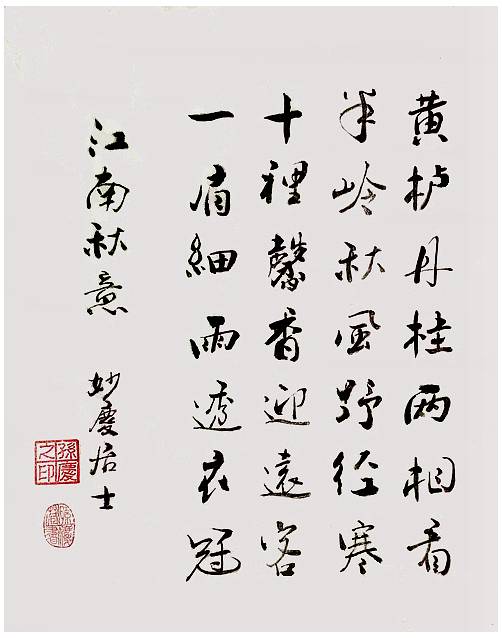 黄栌丹桂两相看
半岭秋风野径寒
十裡馨香迎遠客
一肩細雨透衣冠
江南秋意 妙慶居士
孫慶之印